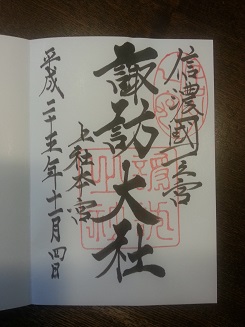 信濃國一之宮
諏訪大社
上社本宮
平成二十五年十一月四日